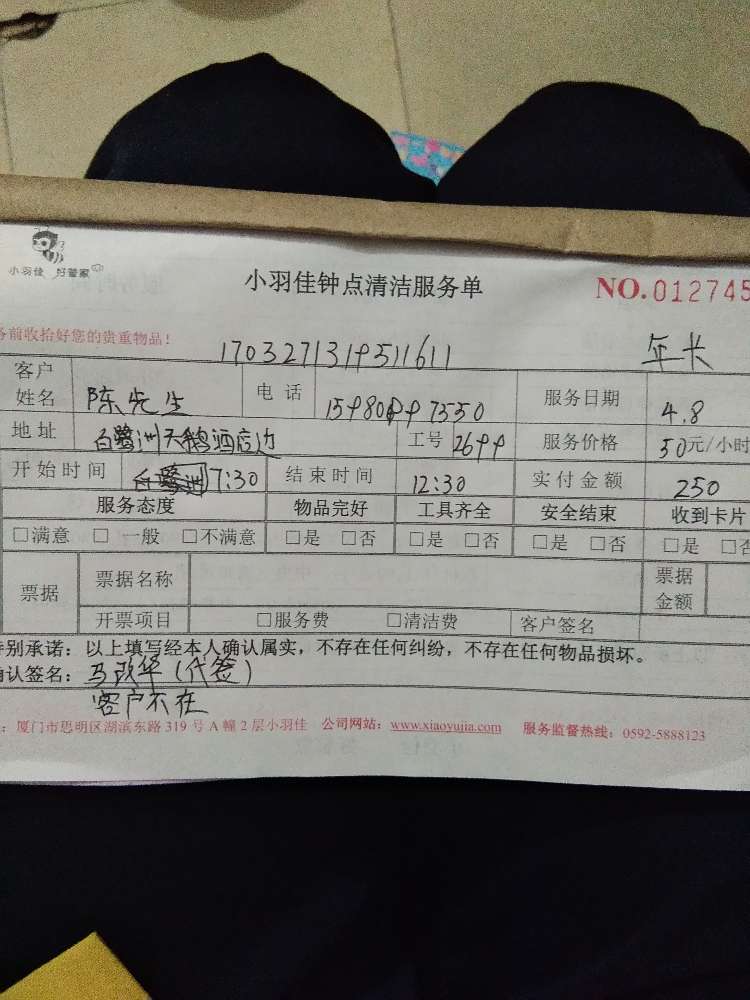 小羽佳 好管家
小羽佳钟点清洁服务单
NO.012745
务前收拾好您的贵重物品！
年长
客户姓名 陈先生 电话 服务日期 4.8
地址 白鹭洲天鹅酒店边 工号 服务价格 50元/小时
开始时间 7:30 结束时间 12:30 实付金额 250
服务态度 物品完好 工具齐全 安全结束 收到卡片
□满意 □一般 □不满意 □是 □否 □是 □否 □是 □否 □是 □否
票据 票据名称 票据金额
开票项目 □服务费 □清洁费 客户签名
特别承诺：以上填写经本人确认属实，不存在任何纠纷，不存在任何物品损坏。
确认签名：马改华（代签）
客户不在
：厦门市思明区湖滨东路319号A幢2层小羽佳 公司网站：www.xiaoyujia.com 服务监督热线：0592-5888123